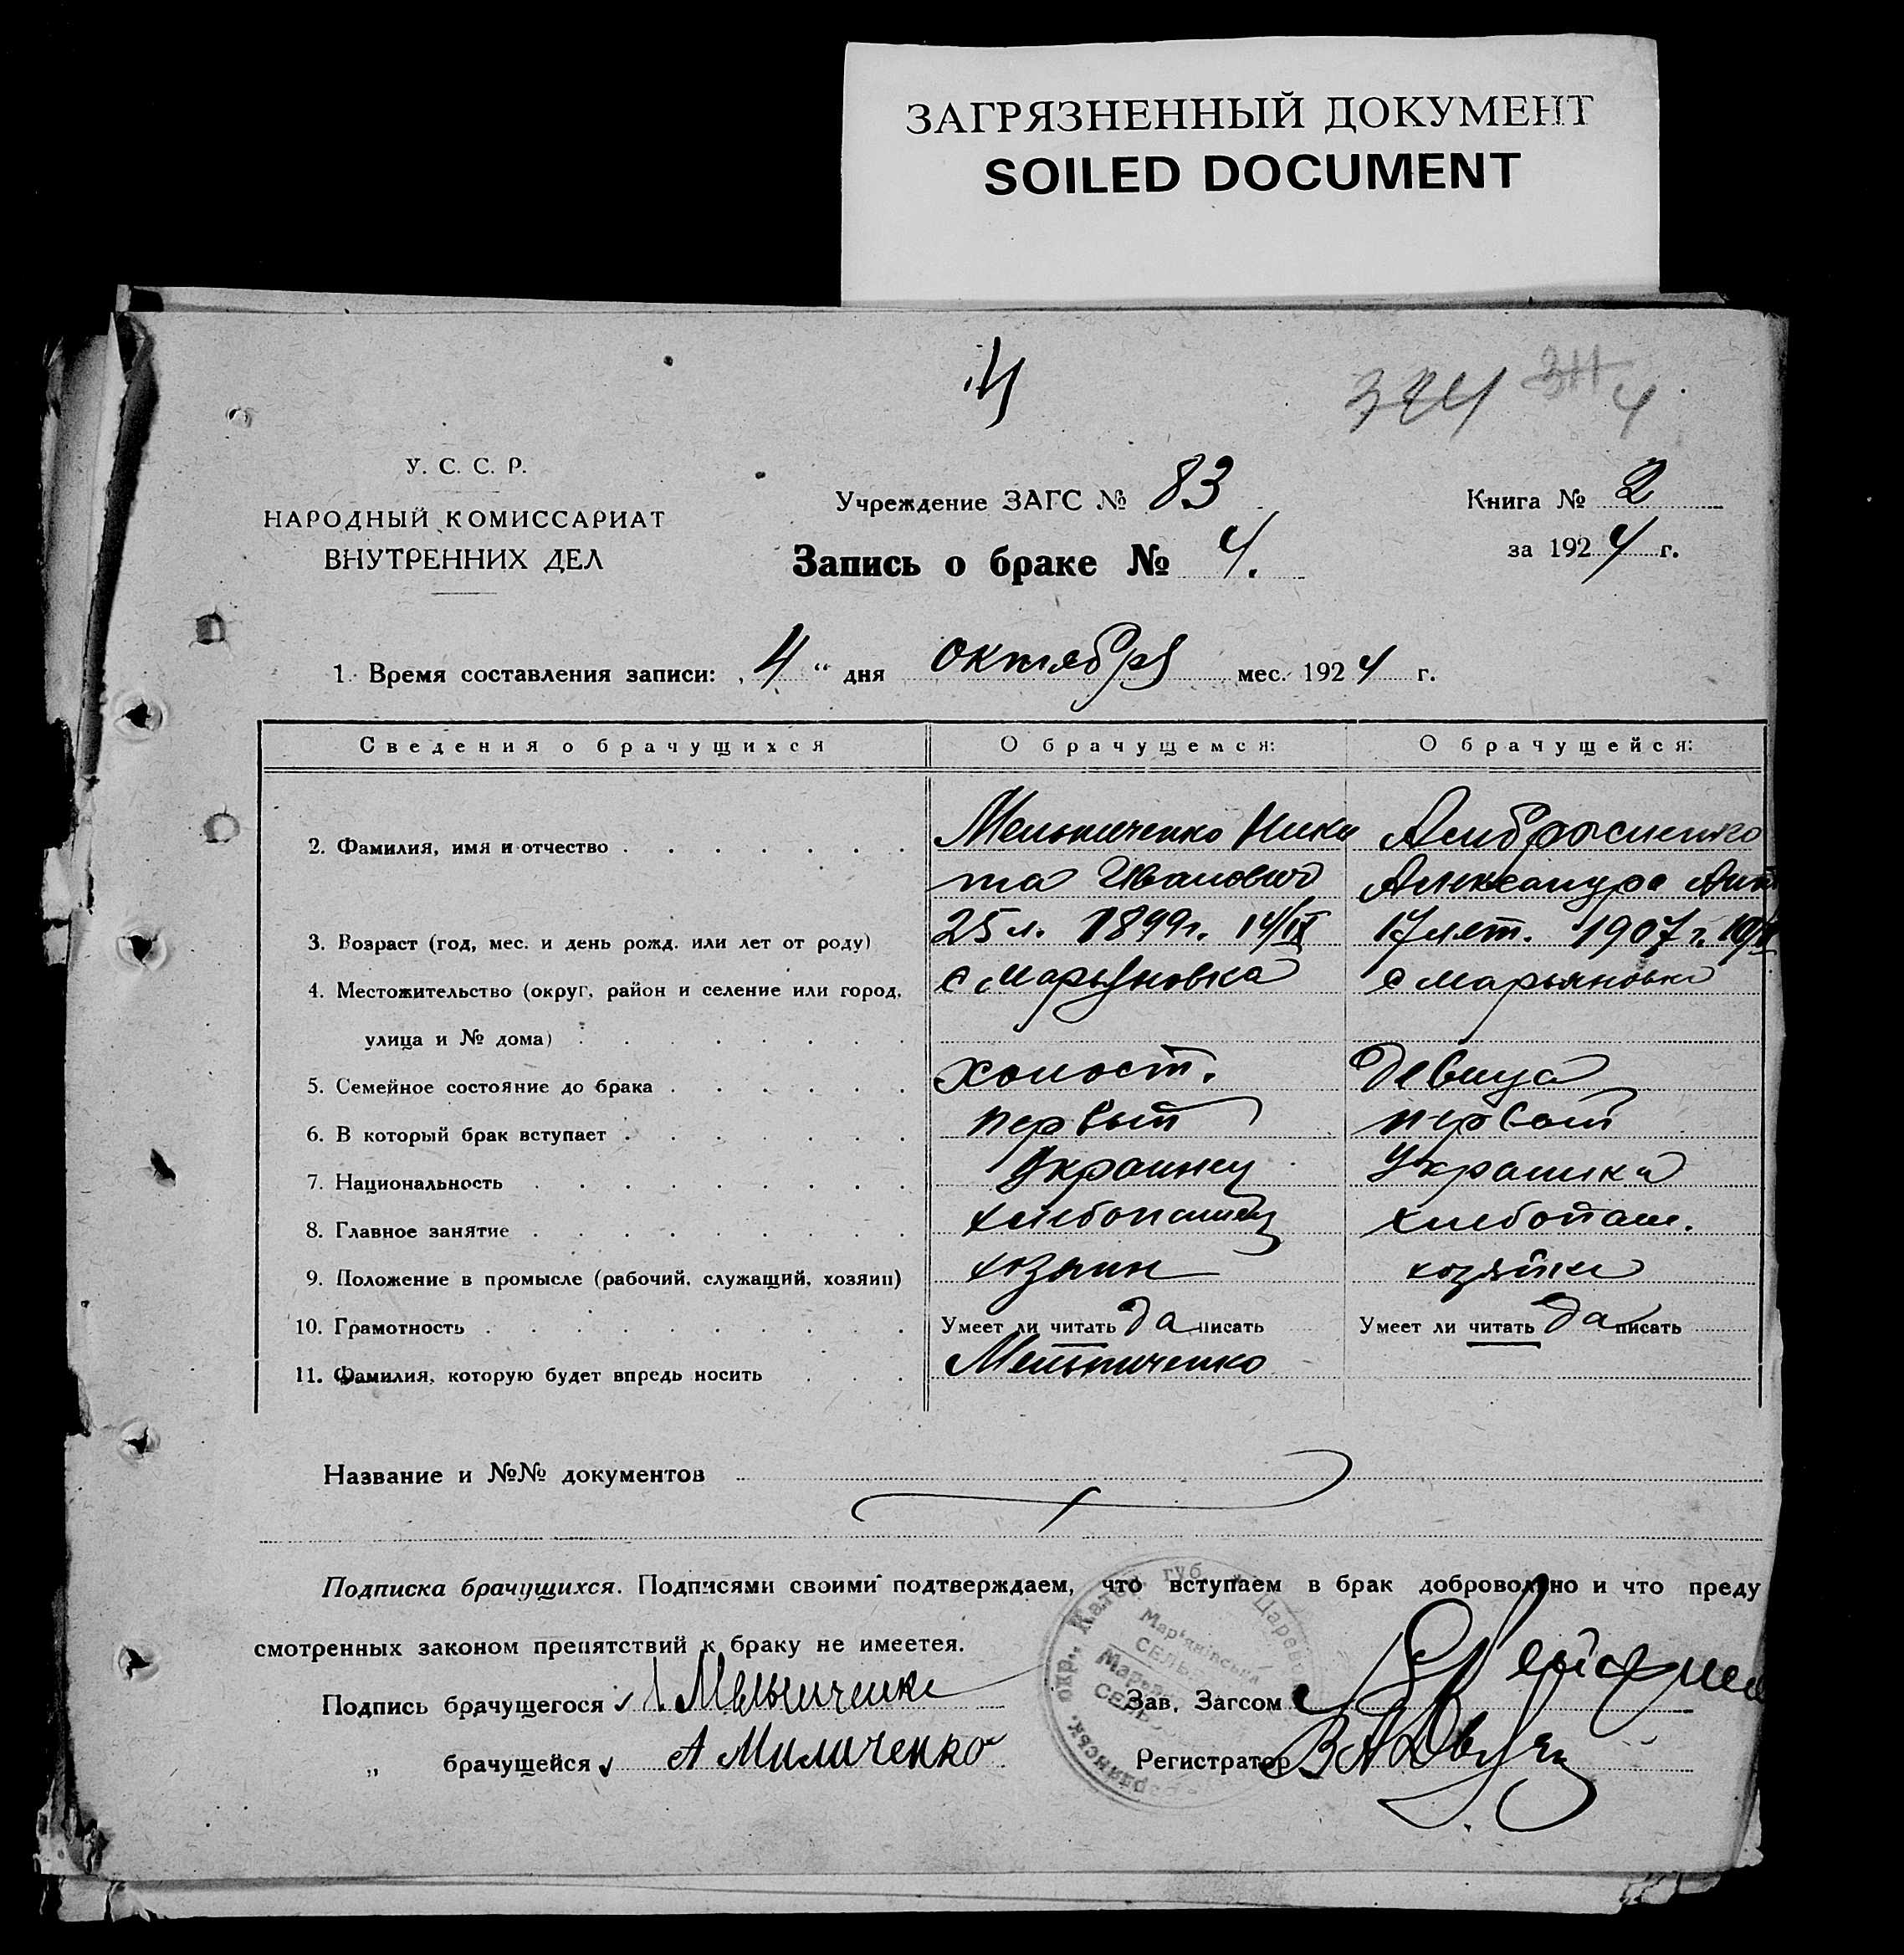 ЗАГРЯЗНЕННЫЙ ДОКУМЕНТ
SOILED DOCUMENT
4
324 311 4
У. С. С. Р.
НАРОДНЫЙ КОМИССАРИАТ
ВНУТРЕННИХ ДЕЛ
Учреждение ЗАГС № 83
Книга № 2
за 1924 г.
Запись о браке № 4.
1. Время составления записи: „4“ дня октября мес. 1924 г.
Сведения о брачущихся О брачущемся: О брачущейся:
2. Фамилия, имя и отчество Мельниченко Ники Амбросиенко
та Иванович Александра
3. Возраст (год, мес. и день рожд. или лет от роду) 25 л. 1899 г. 14/IX 17 лет. 1907 г.
4. Местожительство (округ, район и селение или город, с Марьяновка с Марьяновка
улица и № дома)
5. Семейное состояние до брака холост. девица
6. В который брак вступает первый первый
7. Национальность Украинец Украинка
8. Главное занятие хлебопашец хлебопаш.
9. Положение в промысле (рабочий, служащий, хозяин) хозяин хозяйка
10. Грамотность Умеет ли читать да писать Умеет ли читать да писать
11. Фамилия, которую будет впредь носить Мельниченко
Название и №№ документов
Подписка брачущихся. Подписями своими подтверждаем, что вступаем в брак добровольно и что преду
смотренных законом препятствий к браку не имеется.
Подпись брачущегося Мельниченко
Зав. Загсом
„ брачущейся А Миличенко
Регистратор
губ. Царев
Мар'янівська
СЕЛЬ